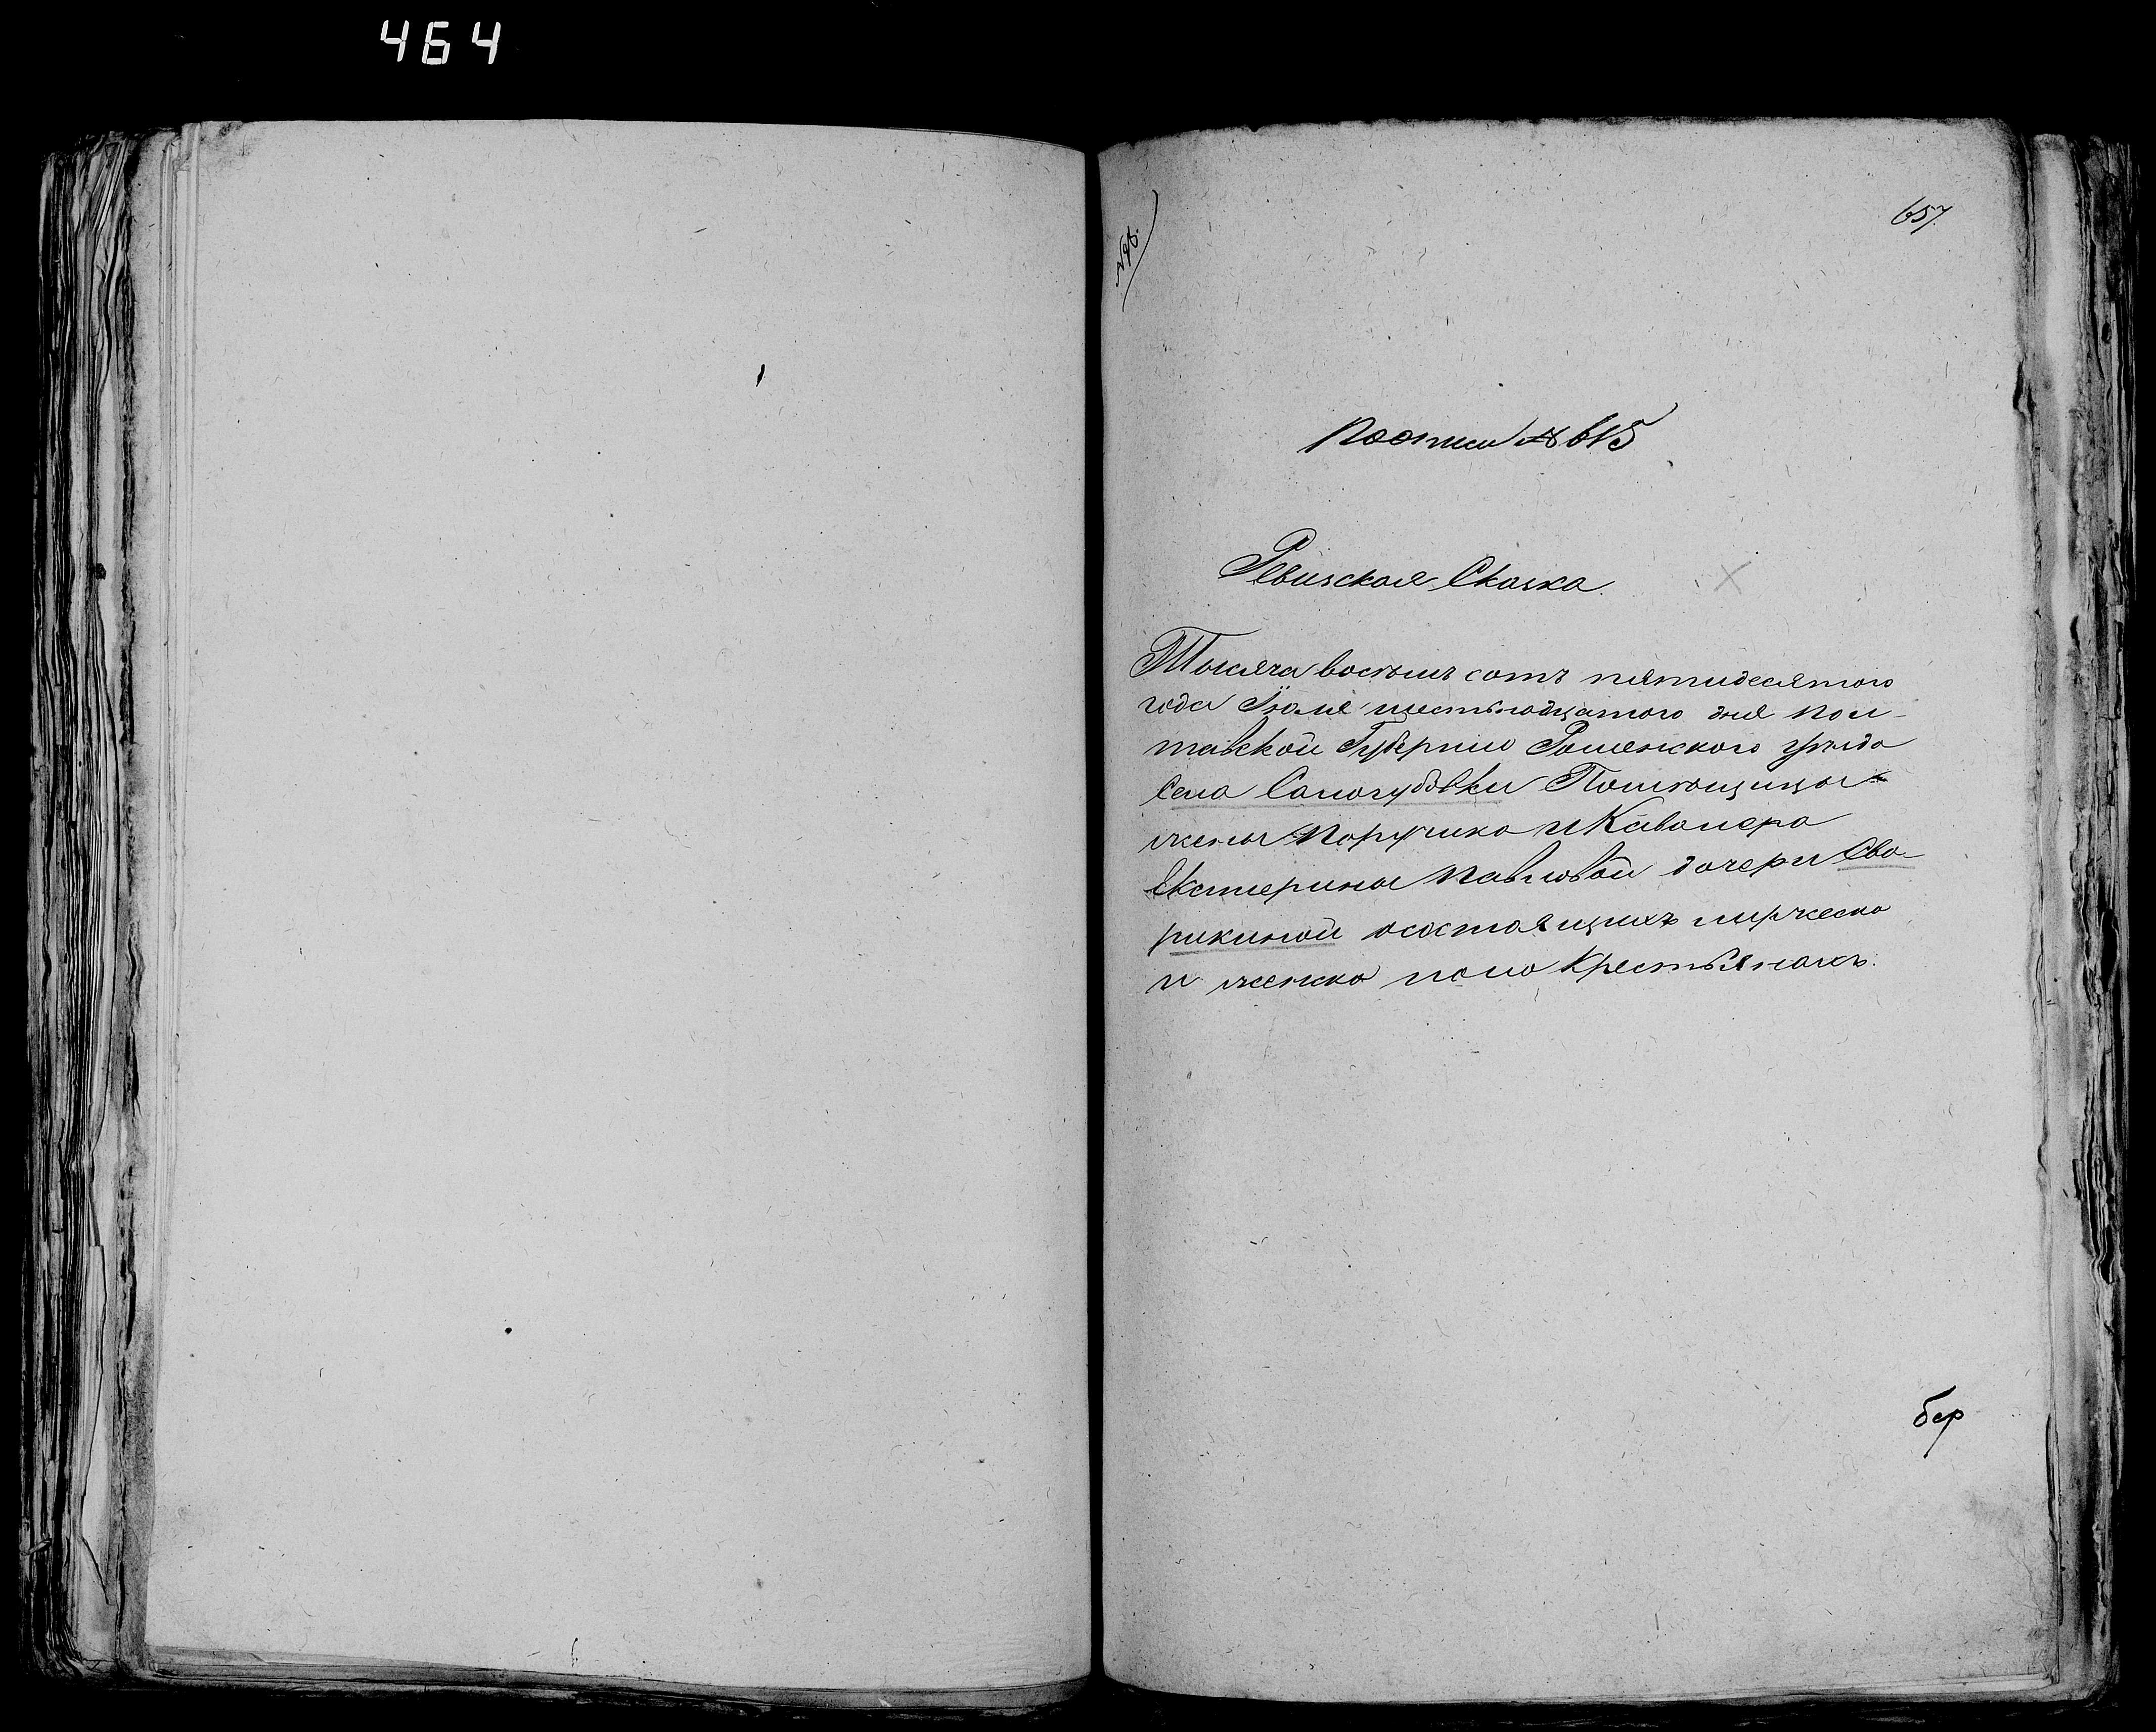 464
657.
По описи № 615
Ревизская Сказка.
Тысяча восѣмь сотъ пятидесятого
года Іюля шестьнадцатого дня Пол-
тавской Губерніи Роменского уѣзда
Села Самогубовки Помѣщицы
жены Поручика и Кавалера
Екатерины Павловой дочери Сва-
рикиной о состоящихъ мужеска
и женска пола Крестьянахъ.